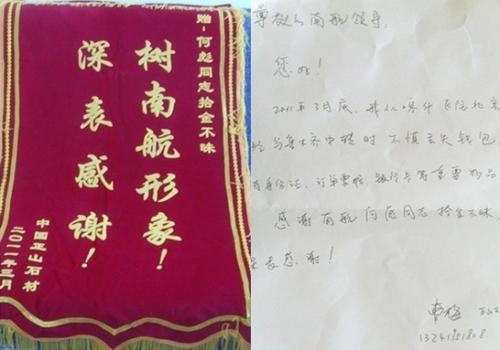 赠-何彪同志拾金不昧
树南航形象！
深表感谢！
中国 山石材
二〇一一年三月
尊敬的南航领导，
您好！
2011年3月底，我从喀什飞往北京
经乌鲁木齐中转时不慎丢失钱包，
有身份证、订单票据、银行卡等重要物品
感谢南航何彪同志拾金不昧
深表感谢！